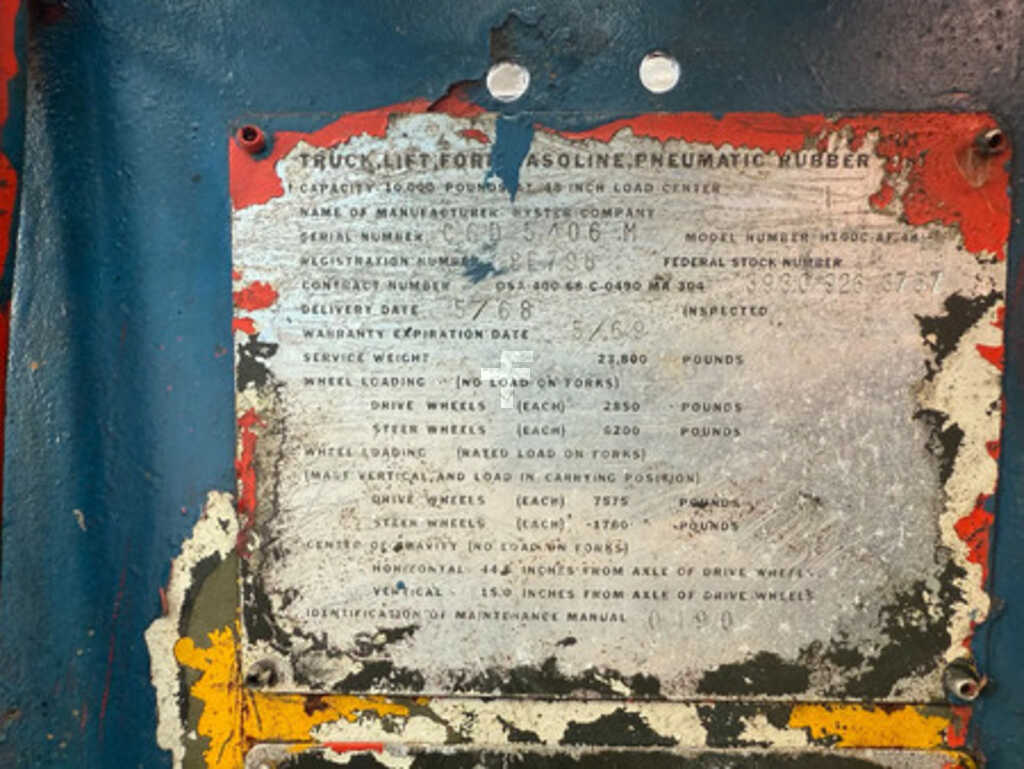 TRUCK, LIFT, FORK ASOLINE, PNEUMATIC RUBBER
CAPACITY 10,000 POUNDS AT 48 INCH LOAD CENTER
NAME OF MANUFACTURER HYSTER COMPANY
SERIAL NUMBER MODEL NUMBER
REGISTRATION NUMBER FEDERAL STOCK NUMBER
CONTRACT NUMBER DSA 400 68 C-0490 MR 304
DELIVERY DATE 5/68 INSPECTED
WARRANTY EXPIRATION DATE 5/69
SERVICE WEIGHT 23,800 POUNDS
WHEEL LOADING (NO LOAD ON FORKS)
DRIVE WHEELS (EACH) 2850 POUNDS
STEER WHEELS (EACH) 6200 POUNDS
WHEEL LOADING (RATED LOAD ON FORKS)
(MAST VERTICAL, AND LOAD IN CARRYING POSITION)
DRIVE WHEELS (EACH) 7575 POUNDS
STEER WHEELS (EACH) 1760 POUNDS
CENTER OF GRAVITY (NO LOAD ON FORKS)
HORIZONTAL 44.5 INCHES FROM AXLE OF DRIVE WHEELS
VERTICAL 15.0 INCHES FROM AXLE OF DRIVE WHEELS
IDENTIFICATION OF MAINTENANCE MANUAL